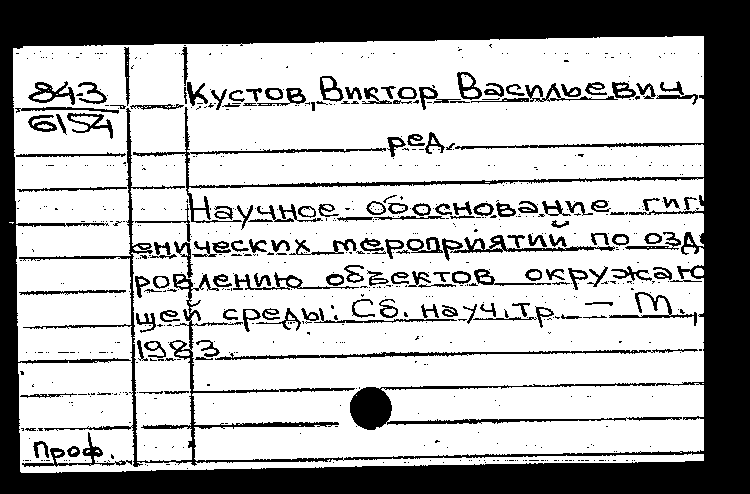 843
6154
Кустов, Виктор Васильевич,
ред.
Научное обоснование гиги
енических мероприятий по оздо
ровлению объектов окружаю
щей среды: Сб. науч. тр. — М.,
1983.
Проф.